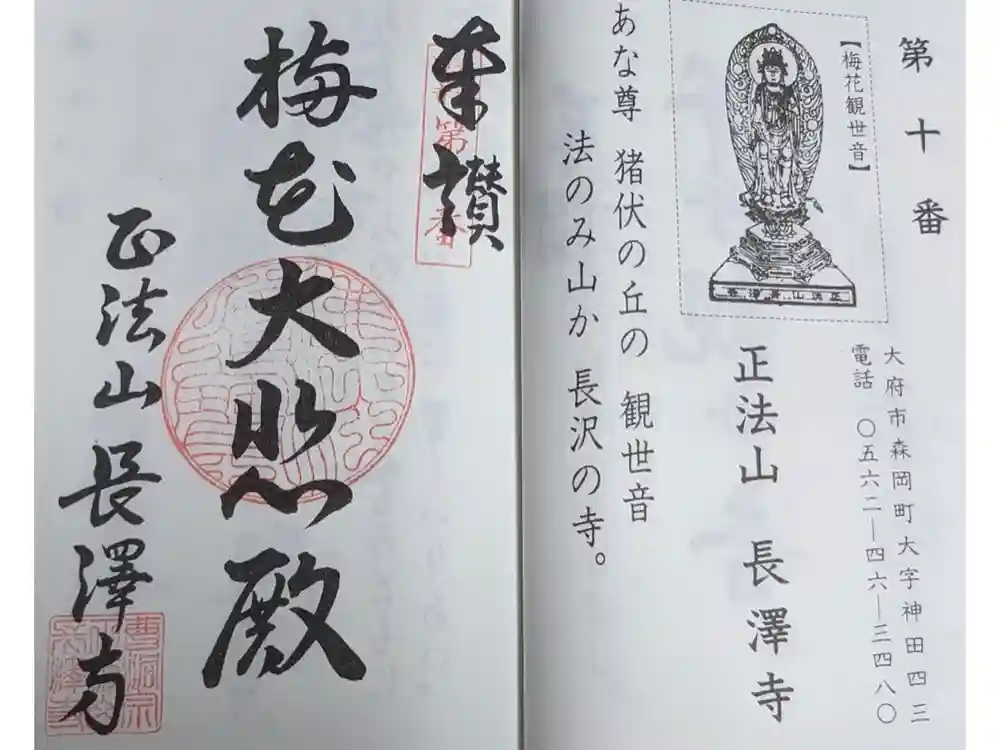 第十番
【梅花観世音】
正法山長澤寺
大府市森岡町大字神田四三
電話 〇五六二―四六―三四八〇
正法山 長澤寺
あな尊 猪伏の丘の 観世音
法のみ山か 長沢の寺。
奉讃
第 番
梅花大悲殿
正法山 長澤寺
曹洞宗
正法山
長澤寺